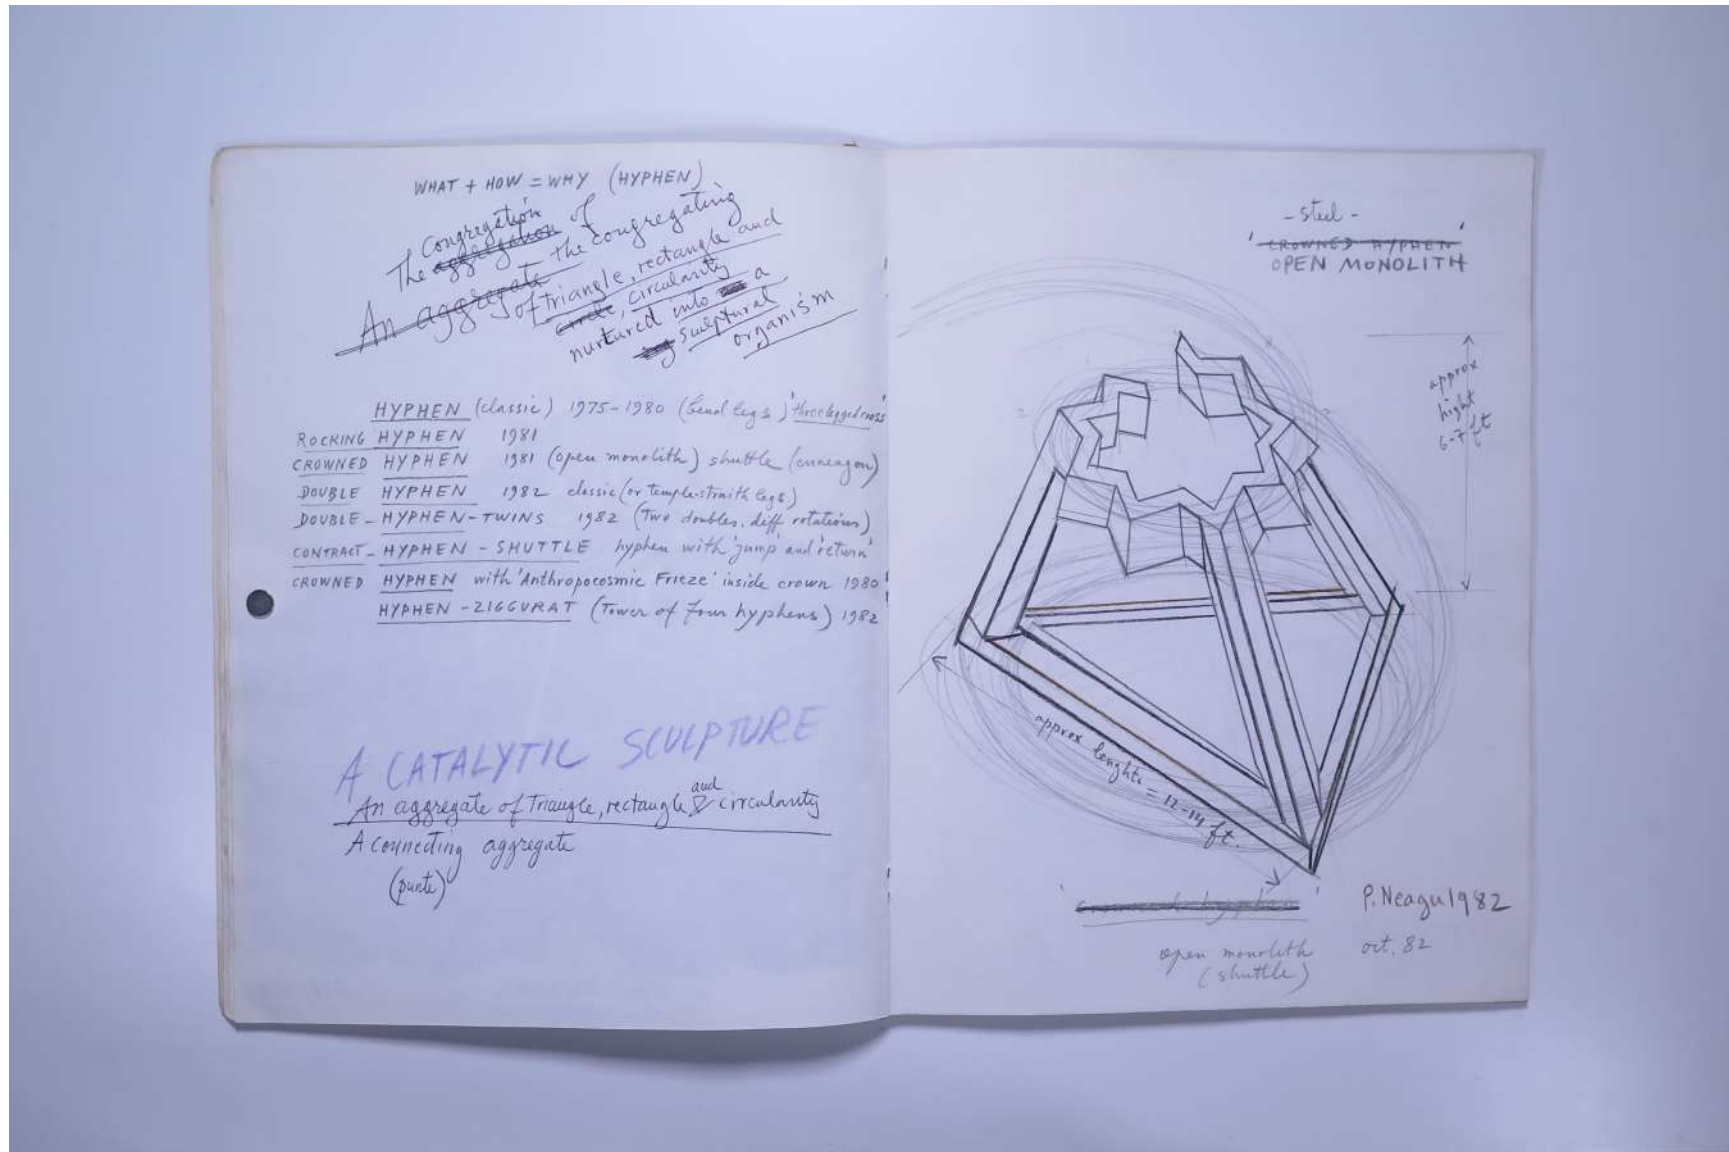 WHAT + HOW = WHY (HYPHEN)
Congregation
The aggregation of
An aggregate the congregating
of triangle, rectangle and
circle, circularity
nurtured into a
sculptural
organism
HYPHEN (classic) 1975-1980 (bend legs) 'three legged cross'
ROCKING HYPHEN 1981
CROWNED HYPHEN 1981 (open monolith) shuttle (enneagon)
DOUBLE HYPHEN 1982 classic (or temple-straith legs)
DOUBLE - HYPHEN - TWINS 1982 (Two doubles, diff rotations)
CONTRACT - HYPHEN - SHUTTLE hyphen with 'jump' and 'return'
CROWNED HYPHEN with 'Anthropocosmic Frieze' inside crown 1980
HYPHEN - ZIGGURAT (Tower of four hyphens) 1982
A CATALYTIC SCULPTURE
An aggregate of Triangle, rectangle and circularity
A connecting aggregate
(punte)
- steel -
'CROWNED HYPHEN'
OPEN MONOLITH
approx
hight
6-7 ft
approx lenght = 12-14 ft.
'crowned hyphen'
P. Neagu 1982
open monolith oct. 82
(shuttle)